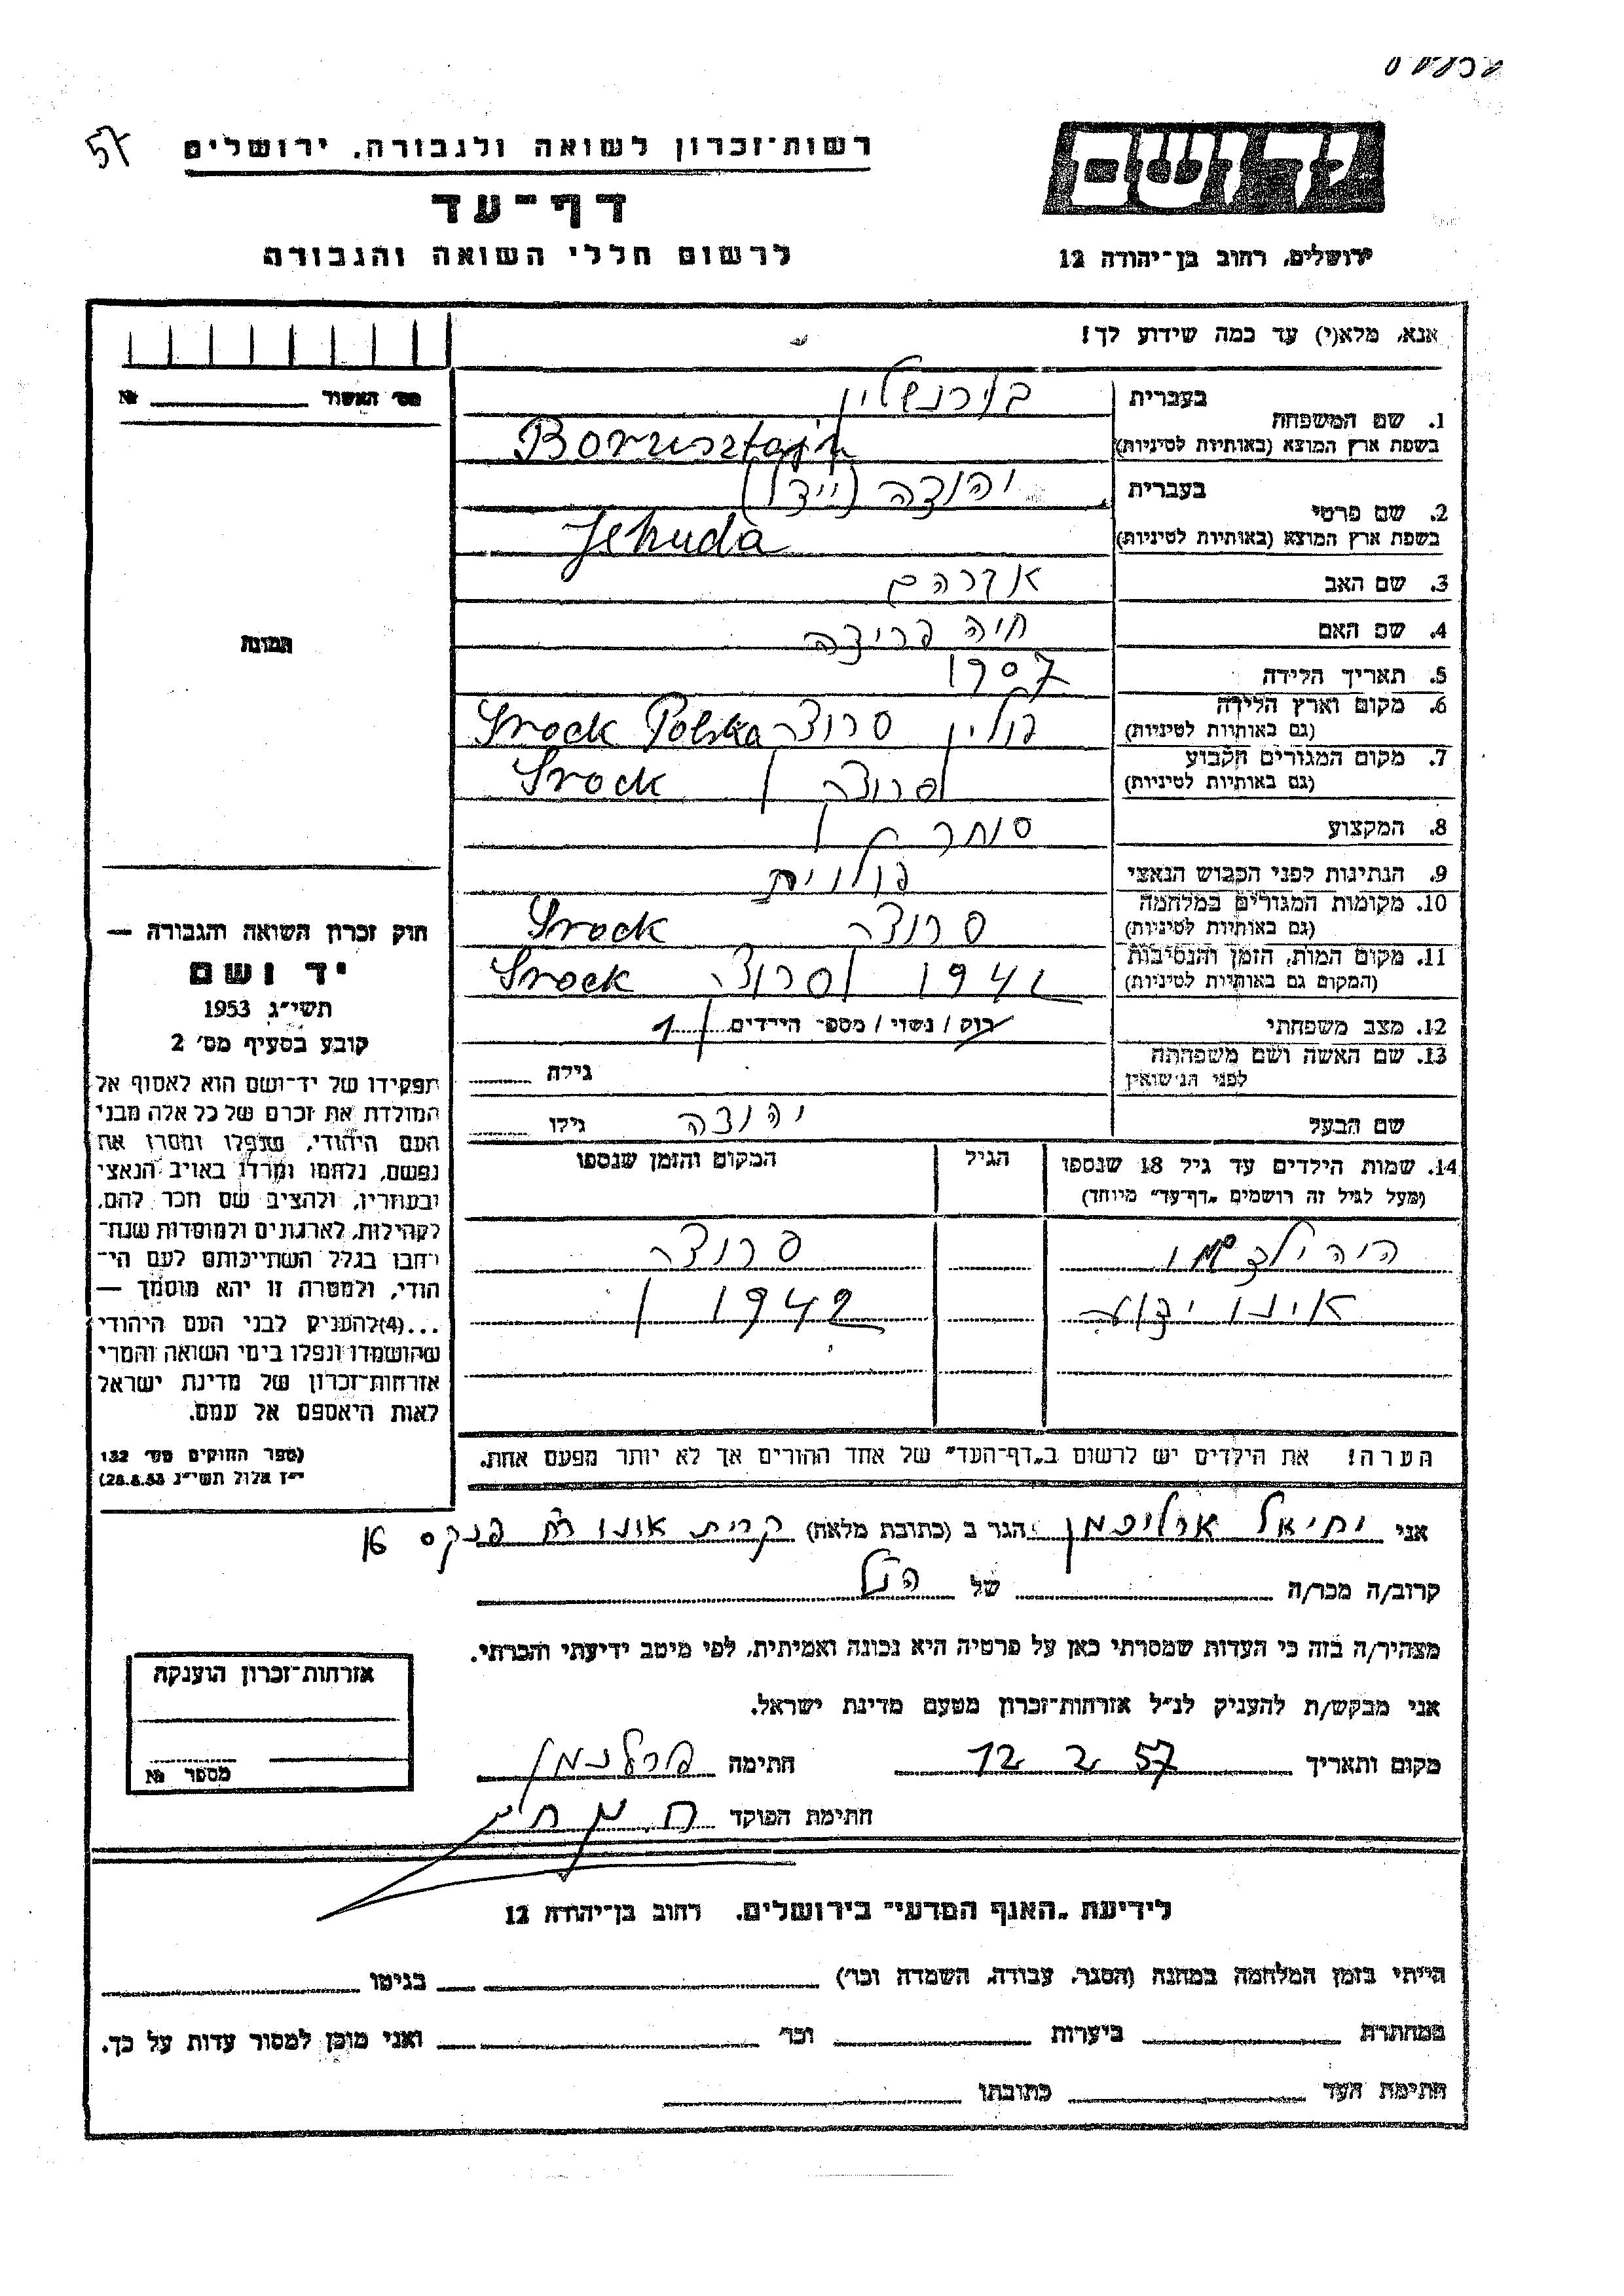 57
רשות־זכרון לשואה ולגבורה, ירושלים
דף־עד
לרשום חללי השואה והגבורה
יד ושם
ירושלים, רחוב בן־יהודה 12
אנא, מלא(י) עד כמה שידוע לך!
מס׳ האשור № 
1. שם המשפחה
בעברית בורנשטיין
בשפת ארץ המוצא (באותיות לטיניות) Bornsztajn
2. שם פרטי
בעברית יהודה (יידל)
בשפת ארץ המוצא (באותיות לטיניות) Jehuda
3. שם האב אברהם
4. שם האם חיה
5. תאריך הלידה 1907
6. מקום וארץ הלידה
(גם באותיות לטיניות) פולין סרוצק Srock Polska
7. מקום המגורים הקבוע
(גם באותיות לטיניות) סרוצק Srock
8. המקצוע סוחר
9. הנתינות לפני הכבוש הנאצי פולנית
10. מקומות המגורים במלחמה
(גם באותיות לטיניות) סרוצק Srock
11. מקום המות, הזמן והנסיבות
(המקום גם באותיות לטיניות) 1942 סרוצק Srock
12. מצב משפחתי רוק / נשוי / מספר הילדים 1
13. שם האשה ושם משפחתה
לפני הנישואין גילה
שם הבעל יהודה גילו
14. שמות הילדים עד גיל 18 שנספו הגיל המקום והזמן שנספו
(מעל לגיל זה רושמים „דף־עד” מיוחד)
סרוצק
אינו ידוע 1942
הערה! את הילדים יש לרשום ב„דף־העד” של אחד ההורים אך לא יותר מפעם אחת.
תמונה
חוק זכרון השואה והגבורה —
יד ושם
תשי״ג 1953
קובע בסעיף מס׳ 2
תפקידו של יד־ושם הוא לאסוף אל
המולדת את זכרם של כל אלה מבני
העם היהודי, שנפלו ומסרו את
נפשם, נלחמו ומרדו באויב הנאצי
ובעוזריו, ולהציב שם וזכר להם,
לקהילות, לארגונים ולמוסדות שנח־
רבו בגלל השתייכותם לעם הי־
הודי, ולמטרה זו יהא מוסמך —
...(4) להעניק לבני העם היהודי
שהושמדו ונפלו בימי השואה והמרי
אזרחות־זכרון של מדינת ישראל
לאות היאספם אל עמם.
(ספר החוקים מס׳ 132
י״ז אלול תשי״ג 28.8.53)
אני יחיאל הגר ב (כתובת מלאה) קרית אונו פנקס 16
קרוב/ה מכר/ה של הנ״ל
מצהיר/ה בזה כי העדות שמסרתי כאן על פרטיה היא נכונה ואמיתית, לפי מיטב ידיעתי והכרתי.
אני מבקש/ת להעניק לנ״ל אזרחות־זכרון מטעם מדינת ישראל.
מקום ותאריך 12 2 57 חתימה
חתימת הפוקד
אזרחות־זכרון הוענקה
מספר №
לידיעת „האגף המדעי” בירושלים, רחוב בן־יהודה 12
הייתי בזמן המלחמה במחנה (הסגר, עבודה, השמדה וכו׳) בגיטו
במחתרת ביערות וכו׳ ואני מוכן למסור עדות על כך.
חתימת העד כתובתו